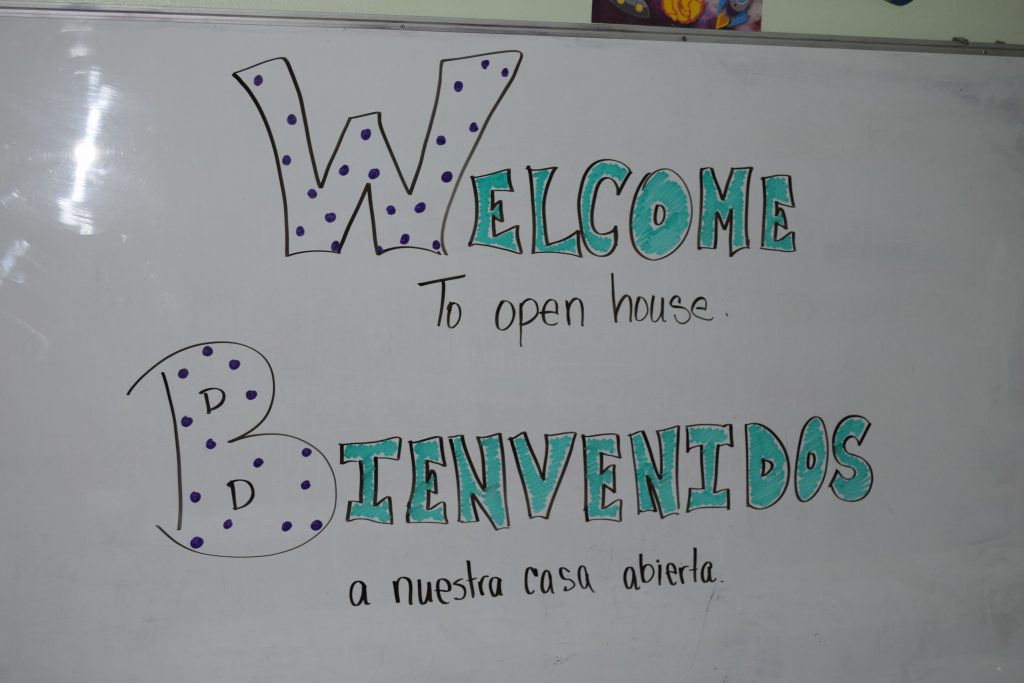 WELCOME
To open house.
BIENVENIDOS
a nuestra casa abierta.